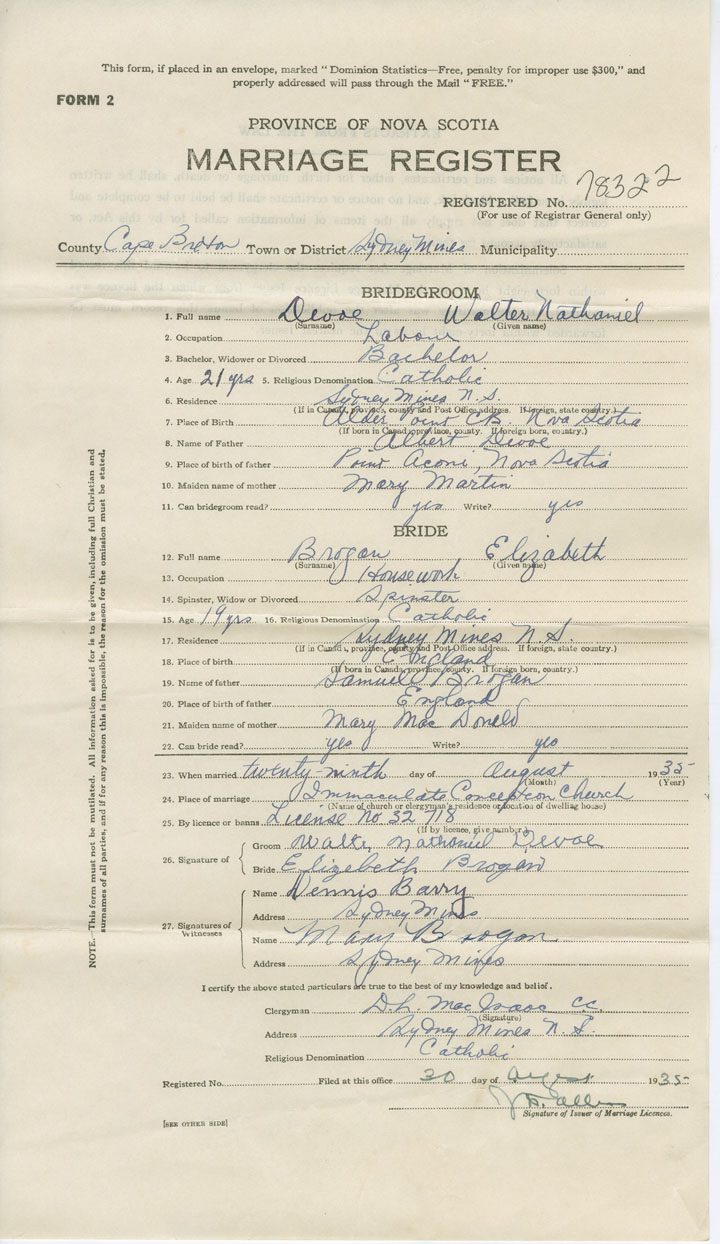 This form, if placed in an envelope, marked "Dominion Statistics—Free, penalty for improper use $300," and
properly addressed will pass through the Mail "FREE."
FORM 2
PROVINCE OF NOVA SCOTIA
MARRIAGE REGISTER
REGISTERED No. 78322
(For use of Registrar General only)
County Cape Breton Town or District Sydney Mines Municipality
BRIDEGROOM
1. Full name Devoe Walter Nathaniel
(Surname) (Given name)
2. Occupation Labour
3. Bachelor, Widower or Divorced Bachelor
4. Age 21 yrs 5. Religious Denomination Catholic
6. Residence Sydney Mines N.S.
(If in Canada, province, county and Post Office address. If foreign, state country.)
7. Place of Birth Alder Point C.B. Nova Scotia
(If born in Canada, province, county. If foreign born, country.)
8. Name of Father Albert Devoe
9. Place of birth of father Point Aconi, Nova Scotia
10. Maiden name of mother Mary Martin
11. Can bridegroom read? yes Write? yes
BRIDE
12. Full name Brogan Elizabeth
(Surname) (Given name)
13. Occupation Housework
14. Spinster, Widow or Divorced Spinster
15. Age 19 yrs 16. Religious Denomination Catholic
17. Residence Sydney Mines N.S.
(If in Canada, province, county and Post Office address. If foreign, state country.)
18. Place of birth England
(If born in Canada, province, county. If foreign born, country.)
19. Name of father Samuel Brogan
20. Place of birth of father England
21. Maiden name of mother Mary Mac Donald
22. Can bride read? yes Write? yes
23. When married twenty-ninth day of August 1935
(Month) (Year)
24. Place of marriage Immaculate Conception Church
(Name of church or clergyman's residence or location of dwelling house)
25. By licence or banns License No 32718
(If by licence, give number)
26. Signature of
Groom Walter Nathaniel Devoe
Bride Elizebeth Brogan
27. Signatures of Witnesses
Name Dennis Barry
Address Sydney Mines
Name Mary Brogan
Address Sydney Mines
I certify the above stated particulars are true to the best of my knowledge and belief.
Clergyman D.h. Mac Isaac cc.
(Signature)
Address Sydney Mines N.S.
Religious Denomination Catholic
Registered No. Filed at this office 30 day of August 1935
Signature of Issuer of Marriage Licences.
[SEE OTHER SIDE]
NOTE.—This form must not be mutilated. All information asked for is to be given, including full Christian and
surnames of all parties, and if for any reason this is impossible, the reason for the omission must be stated.